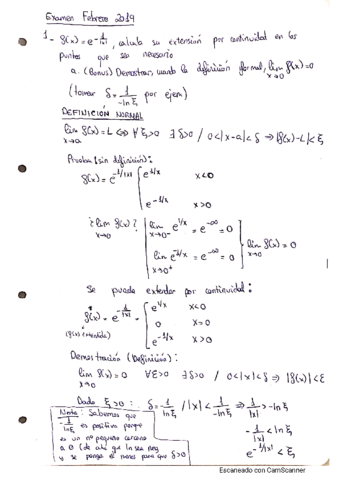 Examen Febrero 2019
1- f(x) = e^{-1/|x|}, calcula su extensión por continuidad en los
puntos que sea necesario
a. (Bonus) Demostrars usando la definición formal, lim x→0 f(x)=0
(tomar δ = 1/-ln ξ por ejem)
DEFINICIÓN NORMAL
lim x→a f(x) = L ⇔ ∀ ξ>0 ∃ δ>0 / 0<|x-a|<δ ⇒ |f(x)-L|<ξ
Prueba (sin definición):
f(x) = e^{-1/|x|} { e^{1/x} x<0
e^{-1/x} x>0
¿lim x→0 f(x)? { lim x→0⁻ e^{1/x} = e^{-∞} = 0
lim x→0⁺ e^{-1/x} = e^{-∞} = 0 } lim x→0 f(x) = 0
Se puede extender por continuidad:
f*(x) = e^{-1/|x|} = { e^{1/x} x<0
0 x=0
e^{-1/x} x>0
(f(x) extendida)
Demostración (Definición):
lim x→0 f(x) = 0 ∀ξ>0 ∃ δ>0 / 0<|x|<δ ⇒ |f(x)|<ξ
Dado ξ>0 : δ = -1/ln ξ / |x| < 1/-ln ξ ⇒ 1/|x| > -ln ξ
-1/|x| < ln ξ
e^{-1/|x|} < ξ
Nota: Sabemos que
-1/ln ξ es positivo porque
es un nº pequeño cercano
a 0 (de ahí que ln sea neg
y se ponga el menos para que δ>0
Escaneado con CamScanner